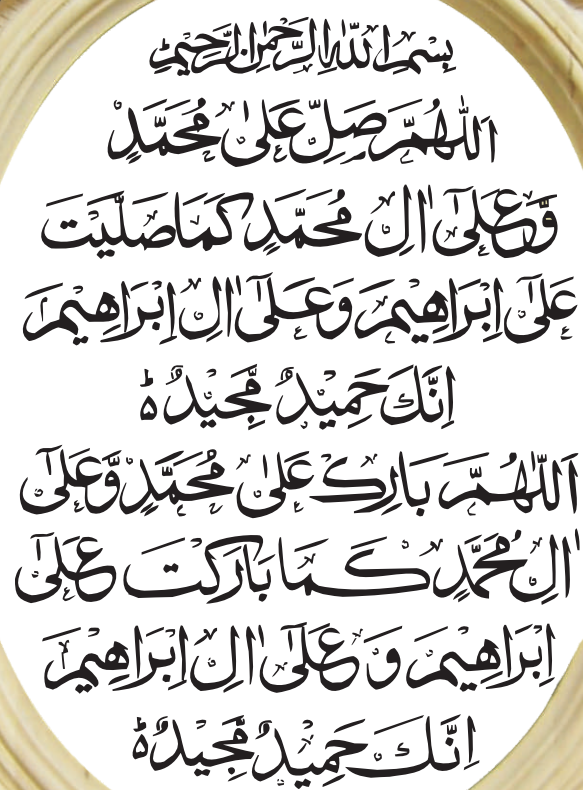 بِسْمِ اللّٰهِ الرَّحْمٰنِ الرَّحِيْمِ
اَللّٰهُمَّ صَلِّ عَلٰى مُحَمَّدٍ
وَّعَلٰٓى اٰلِ مُحَمَّدٍ كَمَا صَلَّيْتَ
عَلٰٓى اِبْرَاهِيْمَ وَعَلٰٓى اٰلِ اِبْرَاهِيْمَ
اِنَّكَ حَمِيْدٌ مَّجِيْدٌ ؕ ه
اَللّٰهُمَّ بَارِكْ عَلٰى مُحَمَّدٍ وَّعَلٰٓى
اٰلِ مُحَمَّدٍ كَمَا بَارَكْتَ عَلٰٓى
اِبْرَاهِيْمَ وَ عَلٰٓى اٰلِ اِبْرَاهِيْمَ
اِنَّكَ حَمِيْدٌ مَّجِيْدٌ ؕ ه